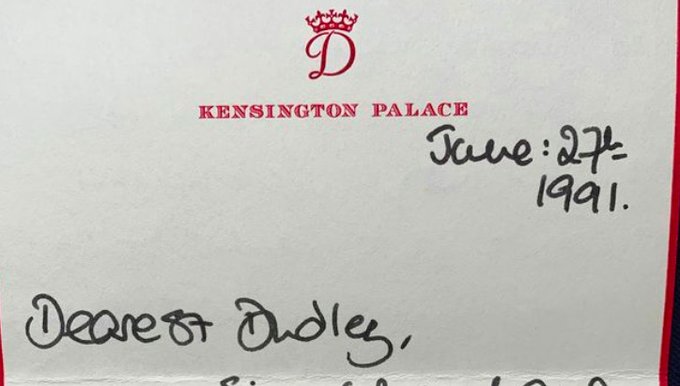 D
KENSINGTON PALACE
June: 27th
1991.
Dearest Dudley,